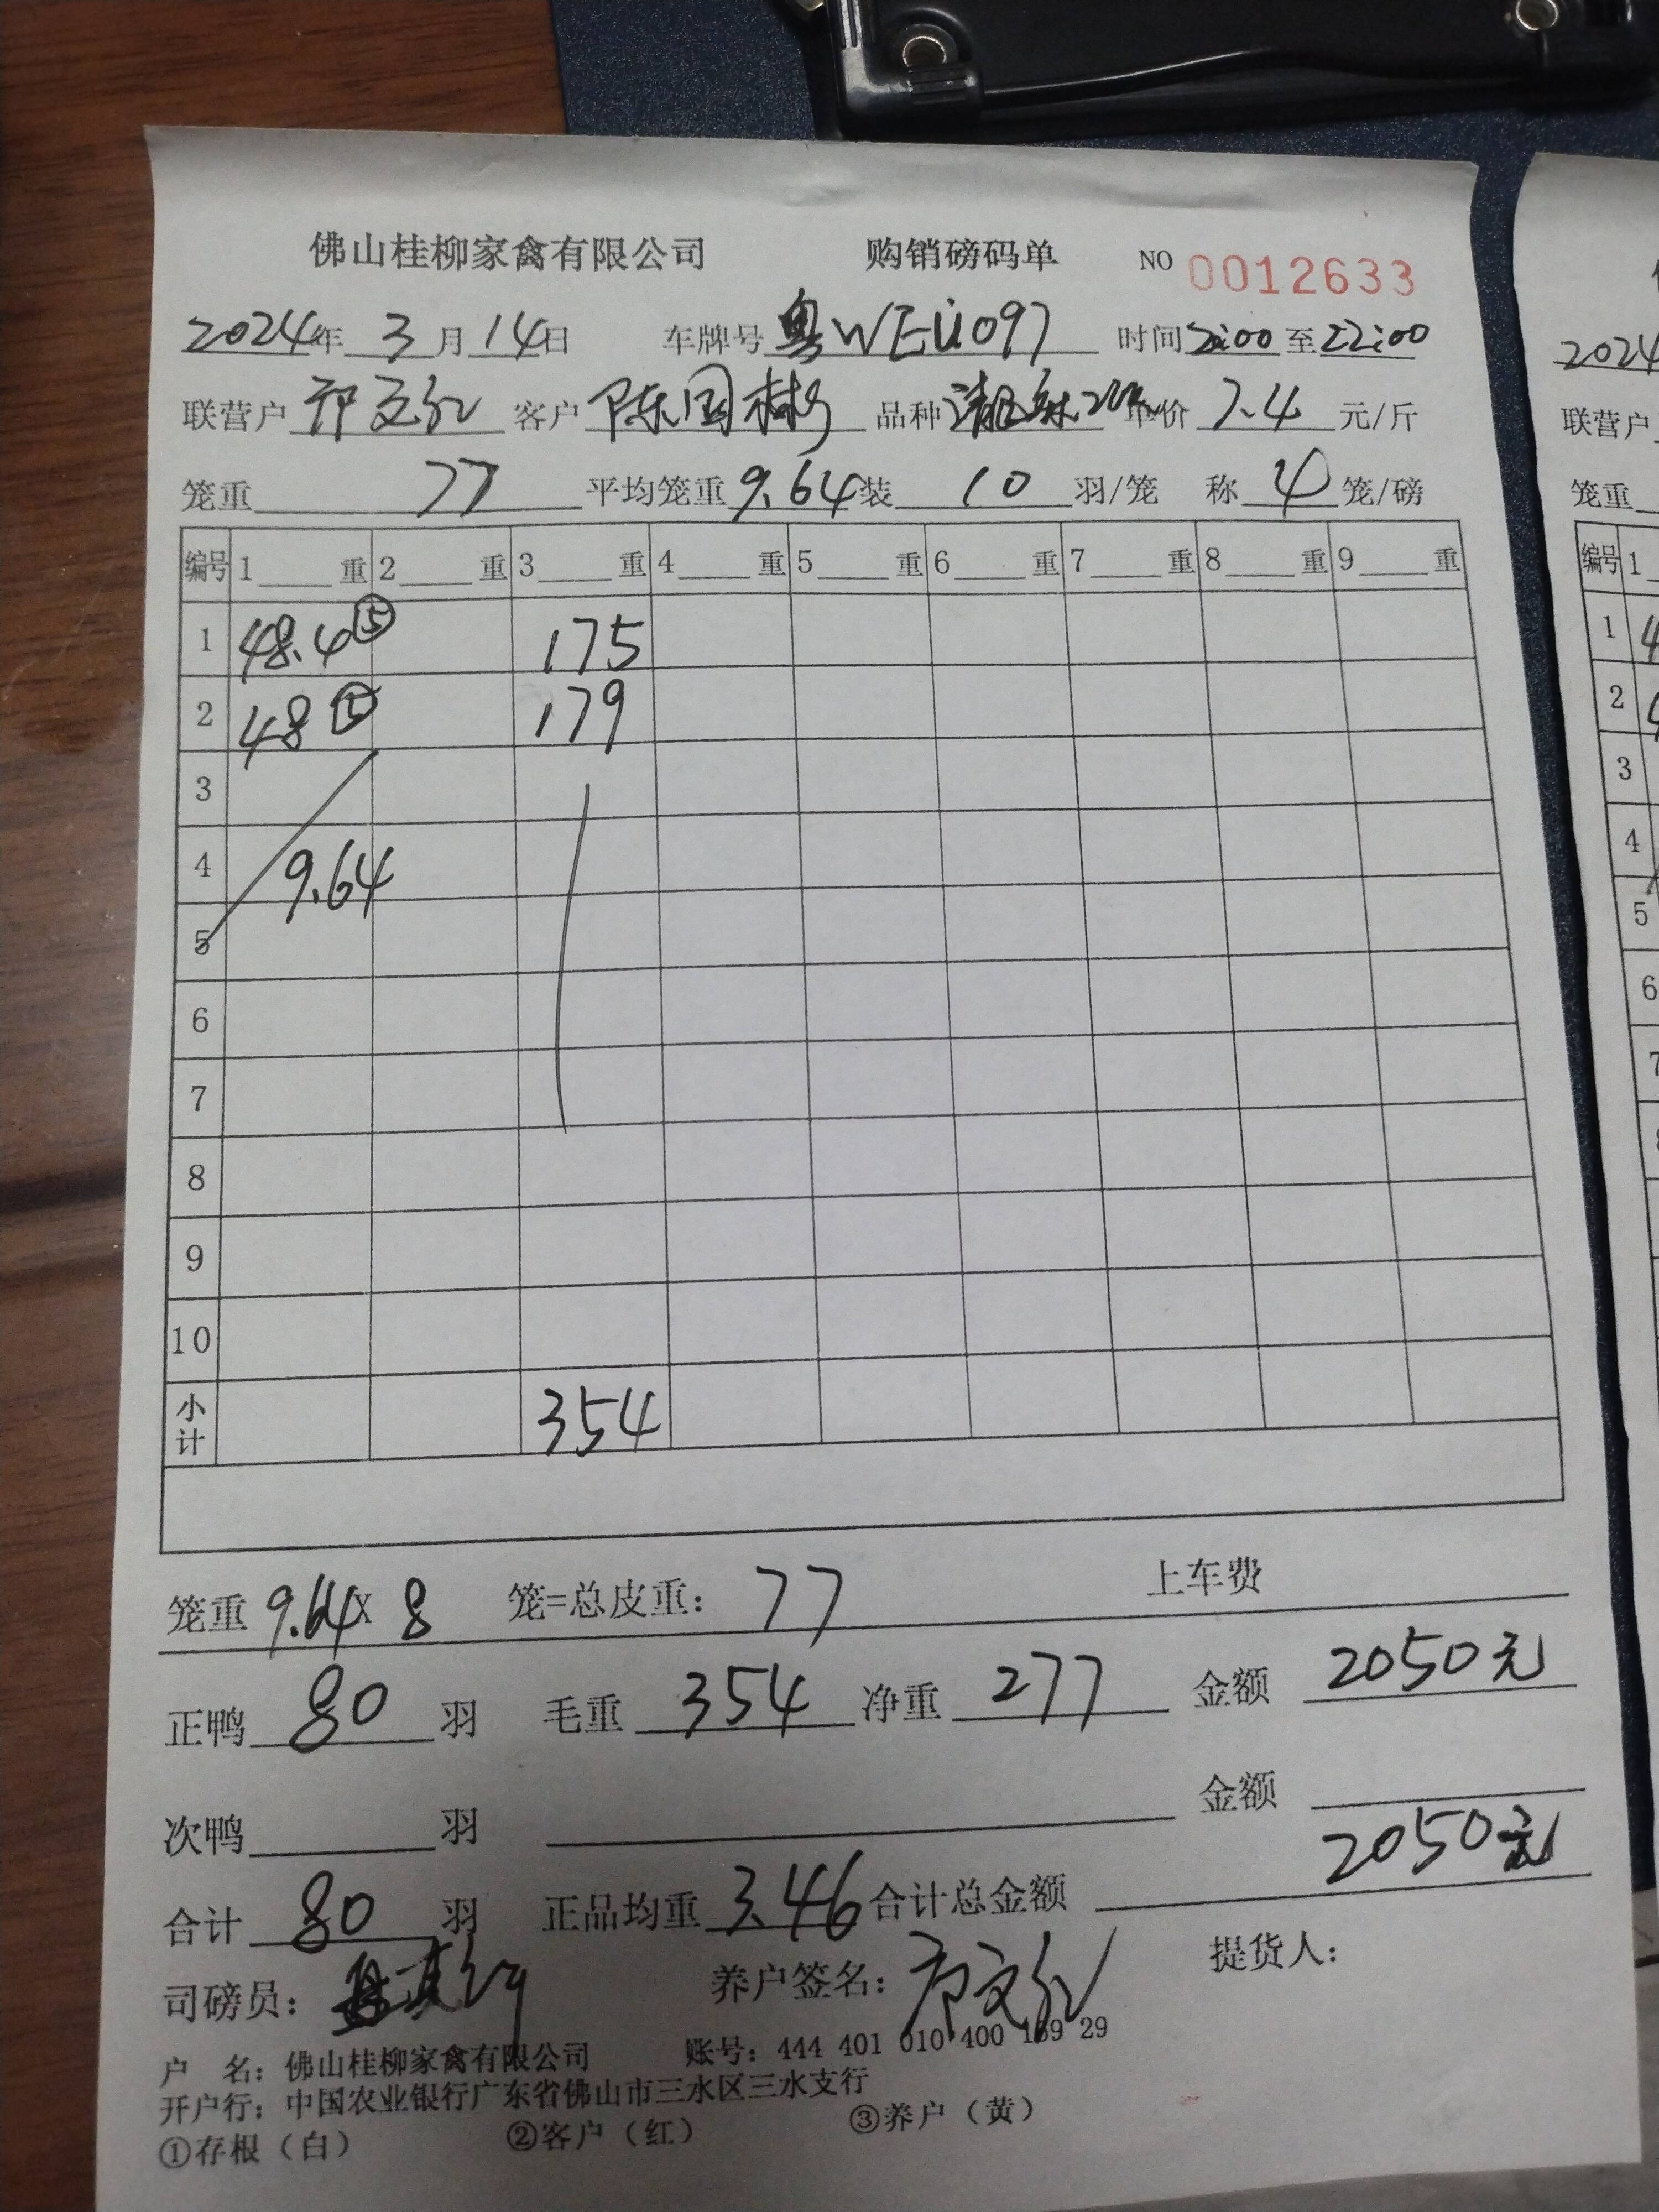 佛山桂柳家禽有限公司 购销磅码单 NO 0012633
2024年 3 月 14日 车牌号 粤WEU097 时间 20:00 至 22:00
联营户 客户 陈国彬 品种 单价 7.4 元/斤
笼重 77 平均笼重 9.64 装 10 羽/笼 称 4 笼/磅
编号 1 重 2 重 3 重 4 重 5 重 6 重 7 重 8 重 9 重
1 48.4⑤ 175
2 48⑤ 179
3
4 9.64
5
6
7
8
9
10
小计 354
笼重 9.64 X 8 笼=总皮重: 77 上车费
正鸭 80 羽 毛重 354 净重 277 金额 2050元
次鸭 羽 金额
合计 80 羽 正品均重 3.46 合计总金额 2050元
司磅员: 养户签名: 提货人:
户 名: 佛山桂柳家禽有限公司 账号: 444 401 010 400 169 29
开户行: 中国农业银行广东省佛山市三水区三水支行
①存根（白） ②客户（红） ③养户（黄）
2024
联营户
笼重
编号 1
1 4
2 4
3
4
5
6
7